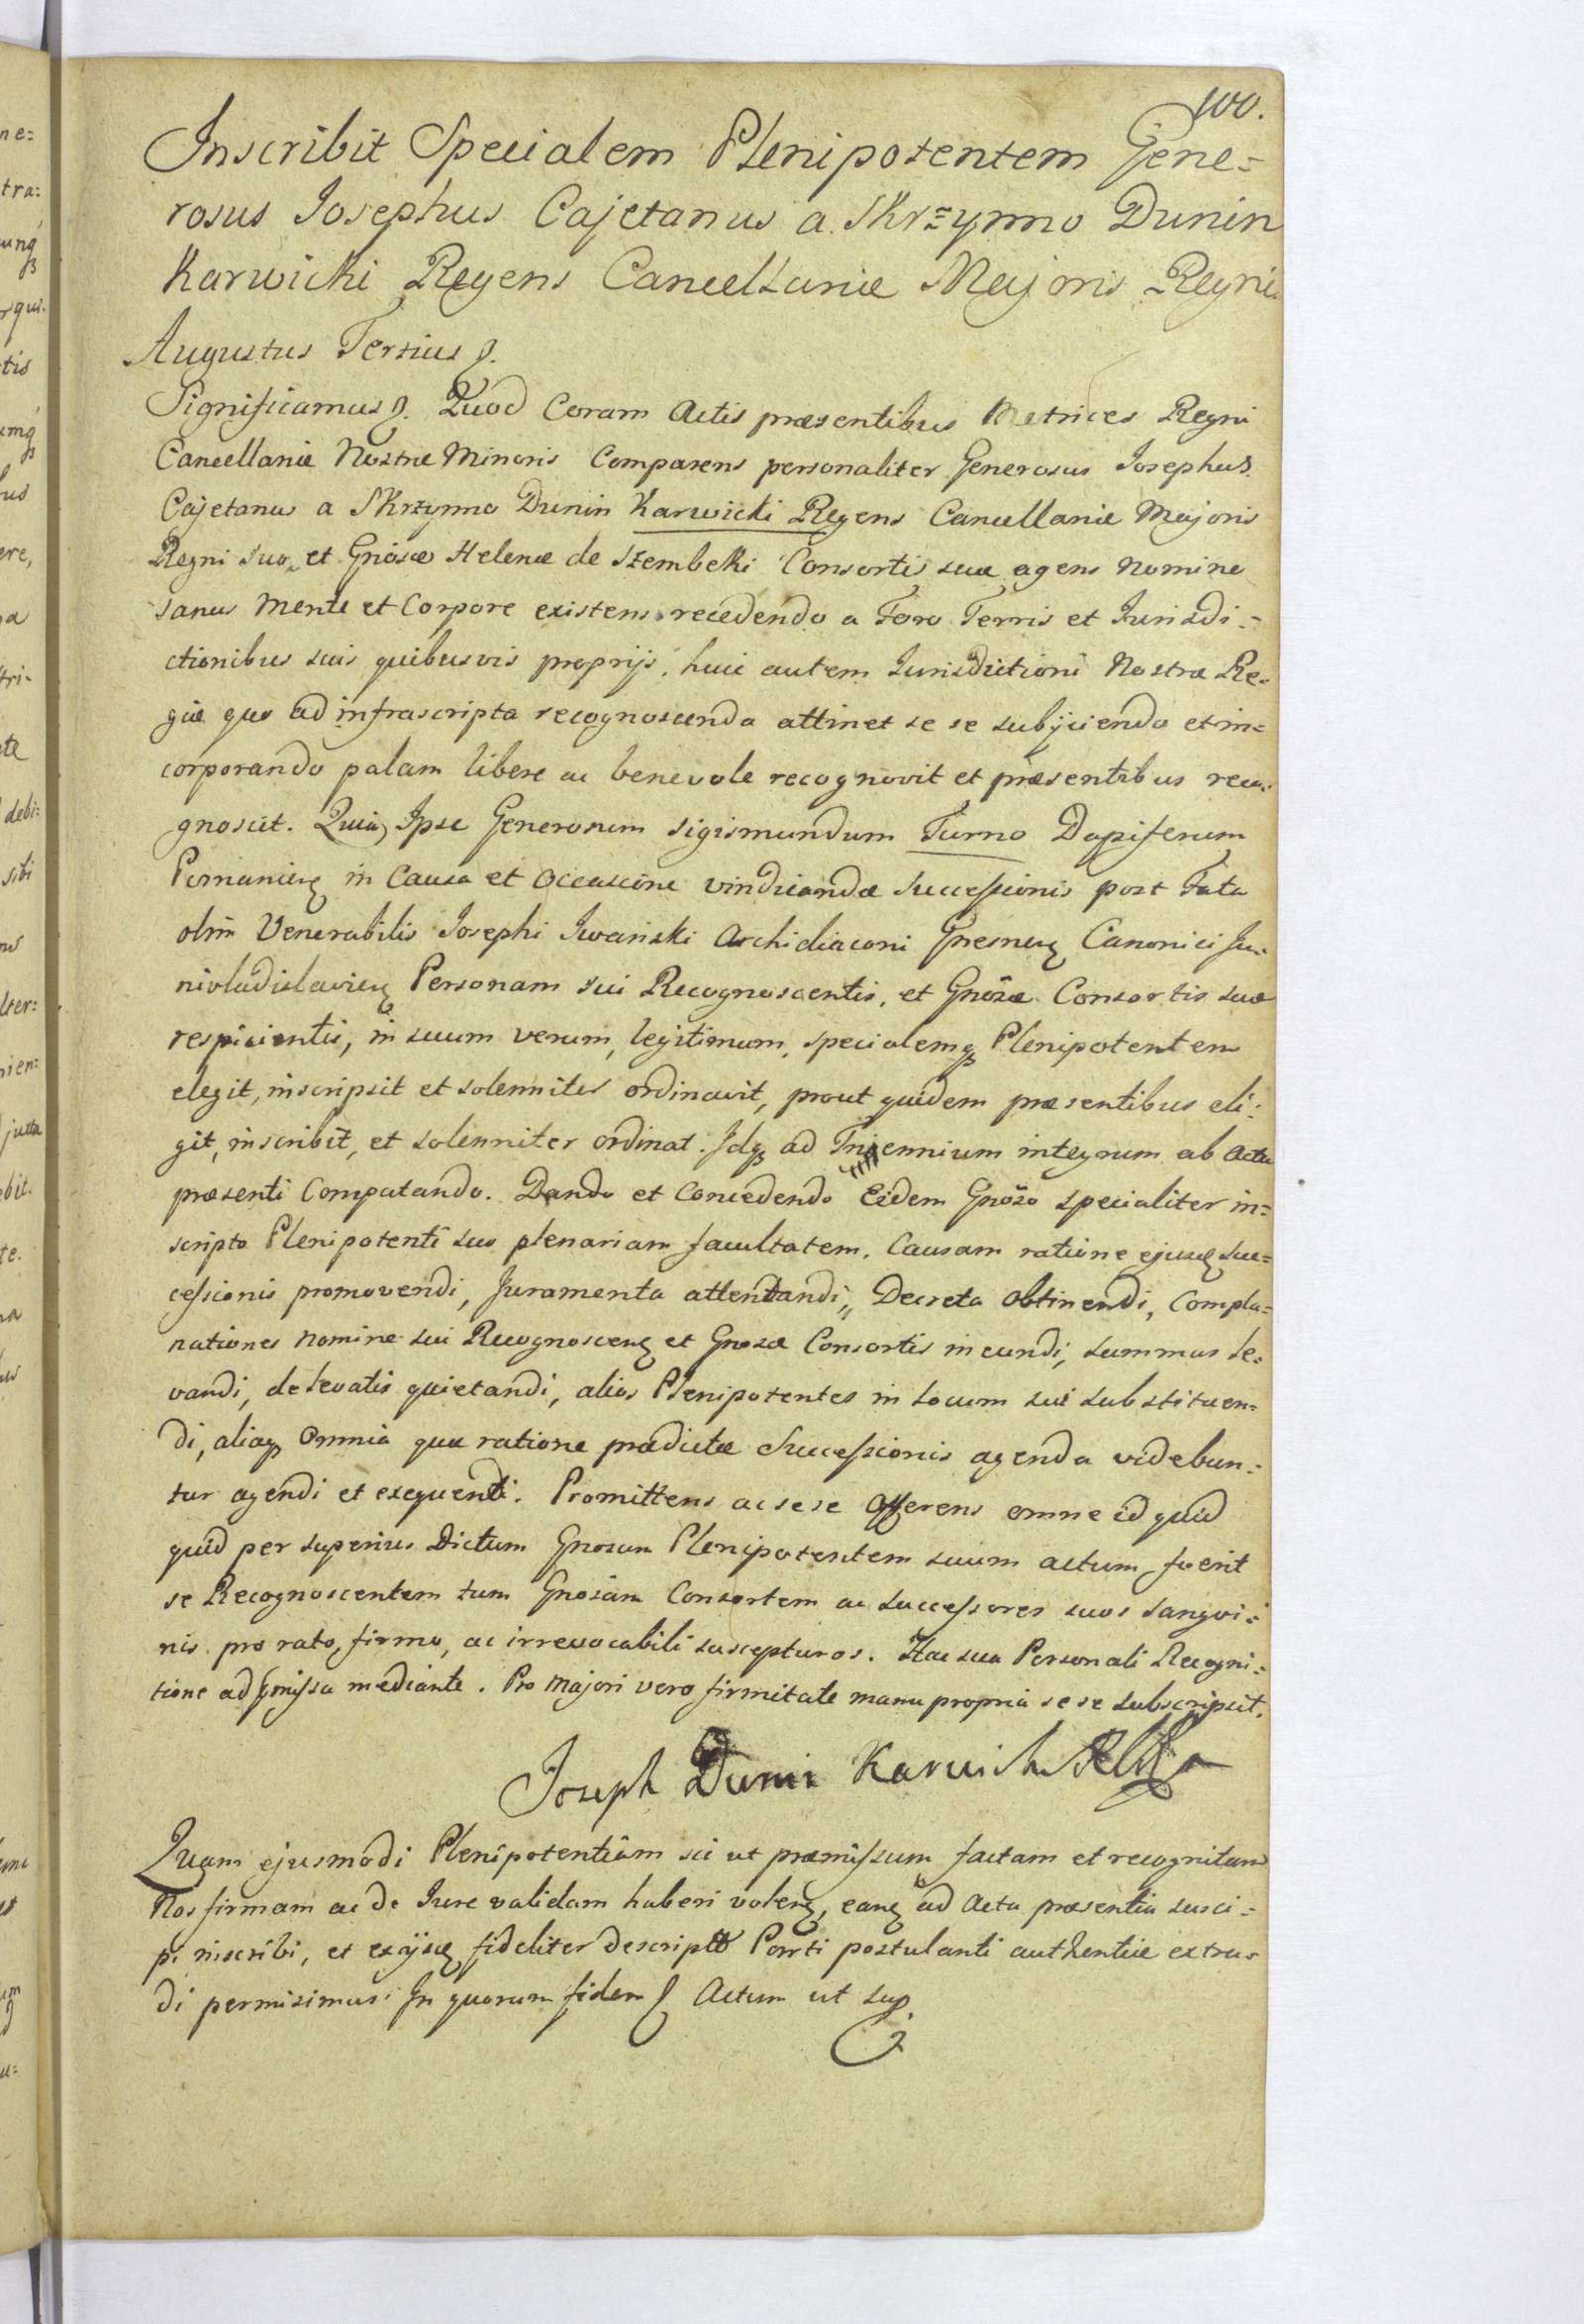 100.
Inscribit Specialem Plenipotentem Gene=
rosus Josephus Cajetanus a Skrzynno Dunin
Karwicki Regens Cancellariæ Majoris Regni
Augustus Tertius
Significamus Quod Coram Actis præsentibus Metrices Regni
Cancellariæ Nostræ Minoris Comparens personaliter Generosus Josephus
Cajetanus a Skrzynno Dunin Karwicki Regens Cancellariæ Majoris
Regni suo, et Gnosæ Helenæ de Szembeki Consortis suæ agens Nomine
sanus Mente et Corpore existens recedendo a Foro Terris et Jurisdi=
ctionibus suis quibusvis proprijs, huic autem Jurisdictioni Nostræ Re=
giæ quo ad infrascripta recognoscenda attinet se se subijciendo et in=
corporando palam libere ac benevole recognovit et præsentibus reco=
gnoscit. Quia, Ipse Generosum Sigismundum Turno Dapiferum
Posnanień in Causa et Occasione vindicandæ Successionis post Fata
olim Venerabilis Josephi Iwański Archidiaconi Gnesneń Canonici Ju=
nivladislavień Personam sui Recognoscentis, et Gnosæ Consortis suæ
respicientis, in suum verum, legitimum, specialemq Plenipotentem
elegit, inscripsit et solenniter ordinavit, prout quidem præsentibus eli=
git, inscribit, et solenniter ordinat. Idq ad Triennium integrum ab Actu
præsenti Computando. Dando et Concedendo Eidem Gnoso specialiter in=
scripto Plenipotenti suo plenariam facultatem, Causam ratione ejusd Suc=
cessionis promovendi, Juramenta attentandi, Decreta obtinendi, Compla=
nationes nomine sui Recognosceñ et Gnosæ Consortis ineundi, summas le=
vandi, de levatis quietandi, alios Plenipotentes in Locum sui substituen=
di, aliaq Omnia quæ ratione prædictæ Successionis agenda videbun=
tur agendi et exequendi. Promittens ac sese Offerens omne id quid
quid per superius Dictum Gnosum Plenipotentem suum actum fuerit
se Recognoscentem tum Gnosam Consortem ac successores suos sangvi=
nis pro rato, firmo, ac irrevocabili suscepturos. Hac sua Personali Recogni=
tione ad præmissa mediante. Pro Majori vero firmitate manu propria se se subscripsit.
Joseph Dunin Karwicki
Quam ejusmodi Plenipotentiam sic ut præmissum factam et recognitam
Nos firmam ac de Jure validam haberi voleñ, eanđ ad Acta præsentia susci=
pi inscribi, et ex ijsd fideliter descriptā Parti postulanti authentice extra=
di permisimus. In quorum fidem Actum ut sup.